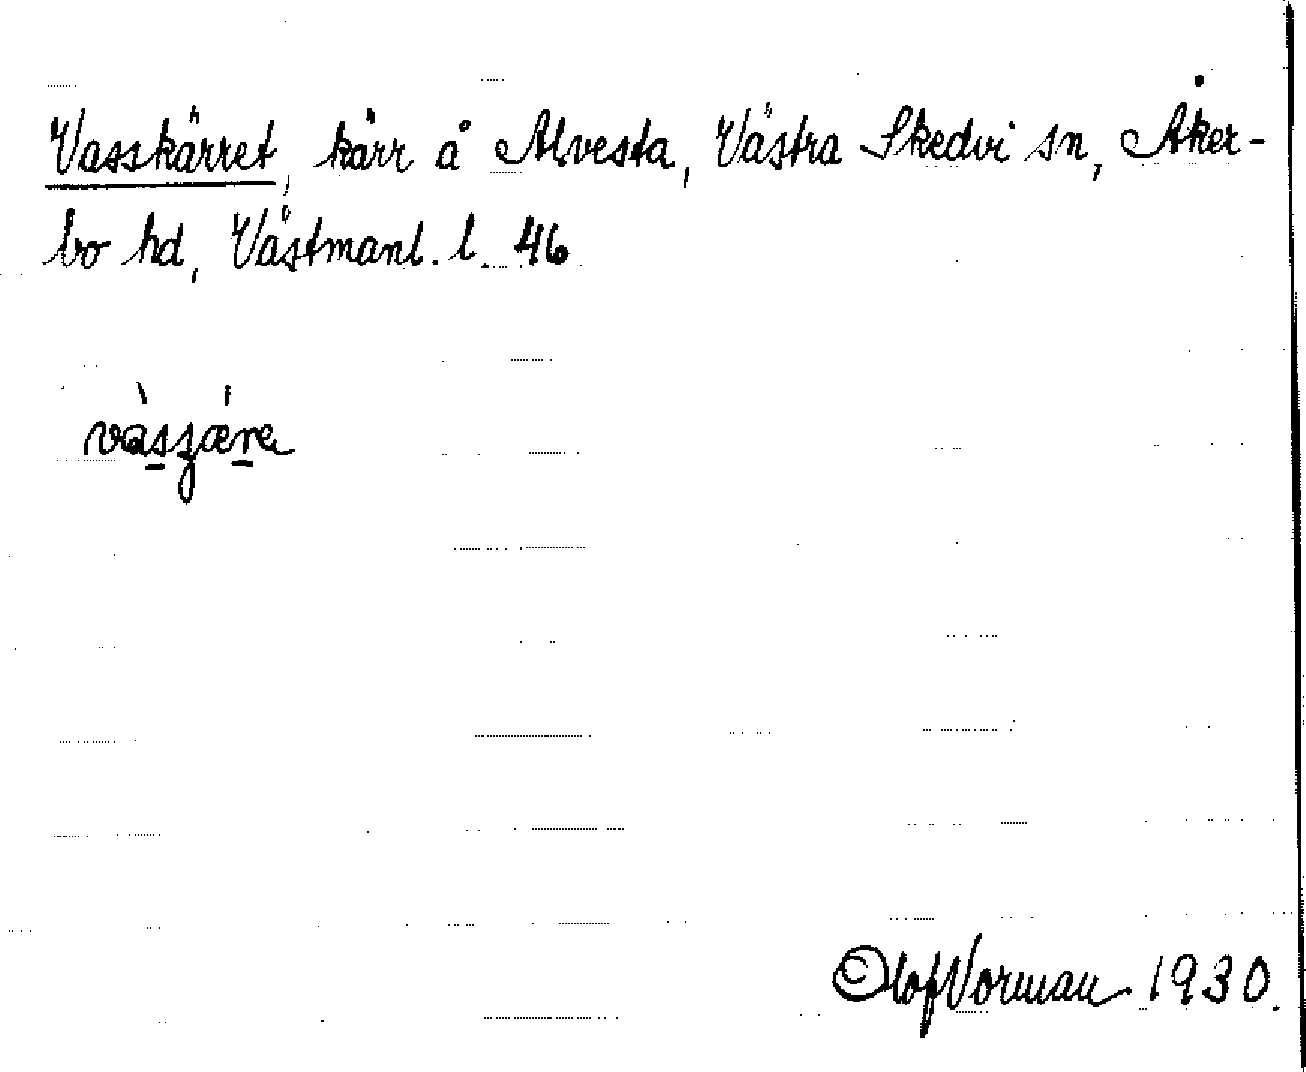 Vasskärret, kärr å Alvesta, Västra Skedvi sn, Åker-
bo hd, Västmanl. l. 46
vàsʒǽre
Olof Vorman 1930.